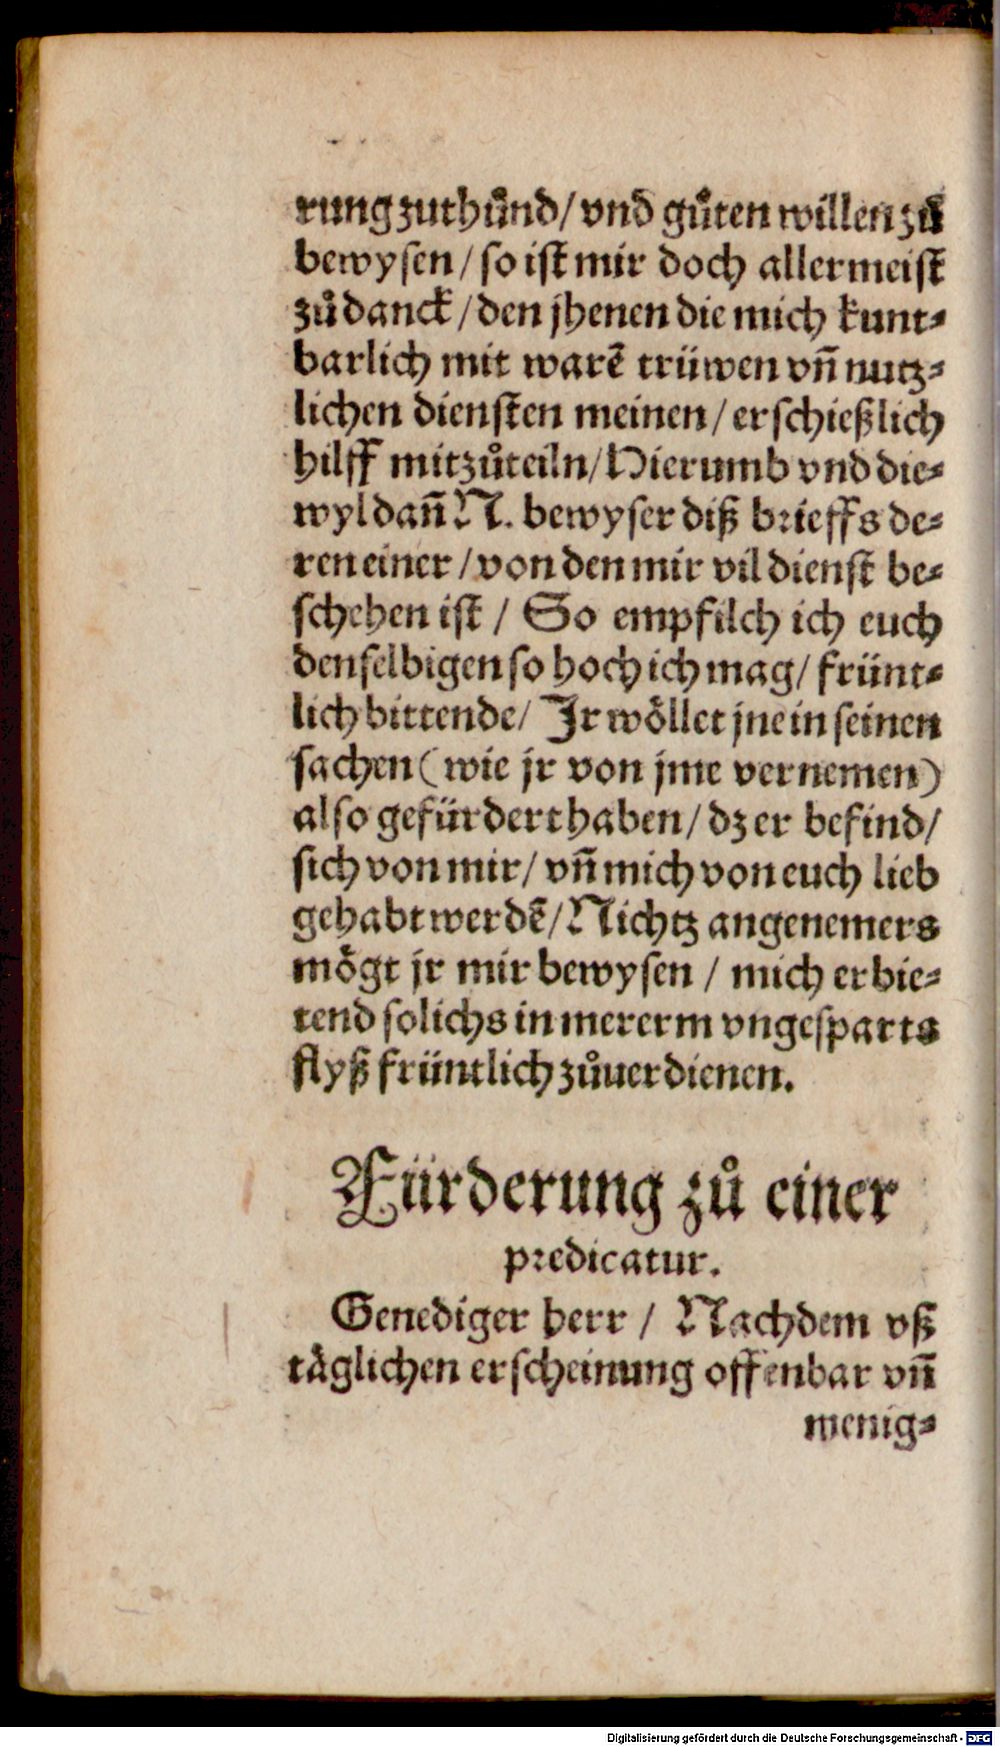 rung zuthůnd/ vnd gůten willen zů
bewysen/ so ist mir doch allermeist
zůdanck/ den jhenen die mich kunt⸗
barlich mit warẽ trüwen vñ nutz⸗
lichen diensten meinen/ erschießlich
hilff mitzůteiln/ Hierumb vnd die⸗
wyl dañ N. bewyser diß brieffs de⸗
ren einer/ von den mir vil dienst be⸗
schehen ist/ So empfilch ich euch
denselbigen so hoch ich mag/ frünt⸗
lich bittende/ Ir wöllet jne in seinen
sachen (wie jr von jme vernemen)
also gefürdert haben/ dz er befind/
sich von mir/ vñ mich von euch lieb
gehabt werdẽ/ Nichtz angenemers
mögt jr mir bewysen/ mich erbie⸗
tend solichs in mererm vngesparts
flyß früntlich zůuerdienen.
Fürderung zů einer
predicatur.
Genediger herr/ Nachdem vß
täglichen erscheinung offenbar vñ
wenig⸗
Digitalisierung gefördert durch die Deutsche Forschungsgemeinschaft - DFG